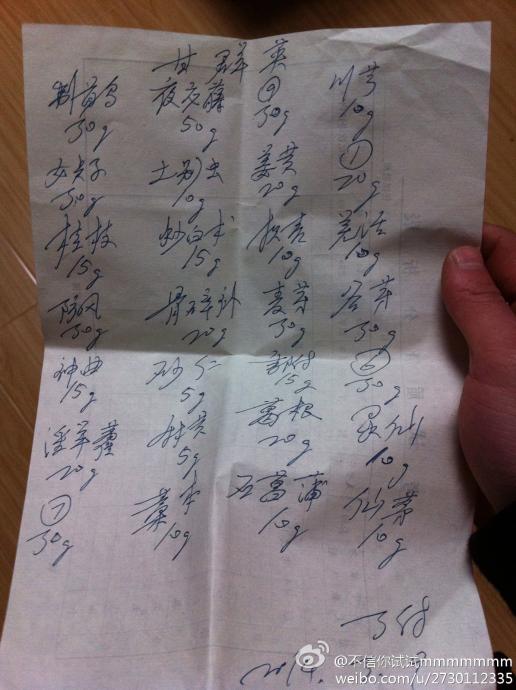 甘 群 英
制首乌 夜交藤 ⑨ 川芎
30g 50g 30g 10g
女贞子 土别虫 姜黄 ①
30g 10g 20g 20g
桂枝 炒白术 羌活
15g 15g 10g 10g
防风 骨碎补 麦芽 谷芽
30g 20g 30g 30g
神曲 砂仁 制附 ⑥
15g 5g 15g 30g
淫羊藿 葛根 灵仙
20g 5g 20g 10g
⑦ 藁本 石菖蒲 仙茅
30g 10g 10g 10g
付
2014.
@不信你试试mmmmmmmm
weibo.com/u/2730112335